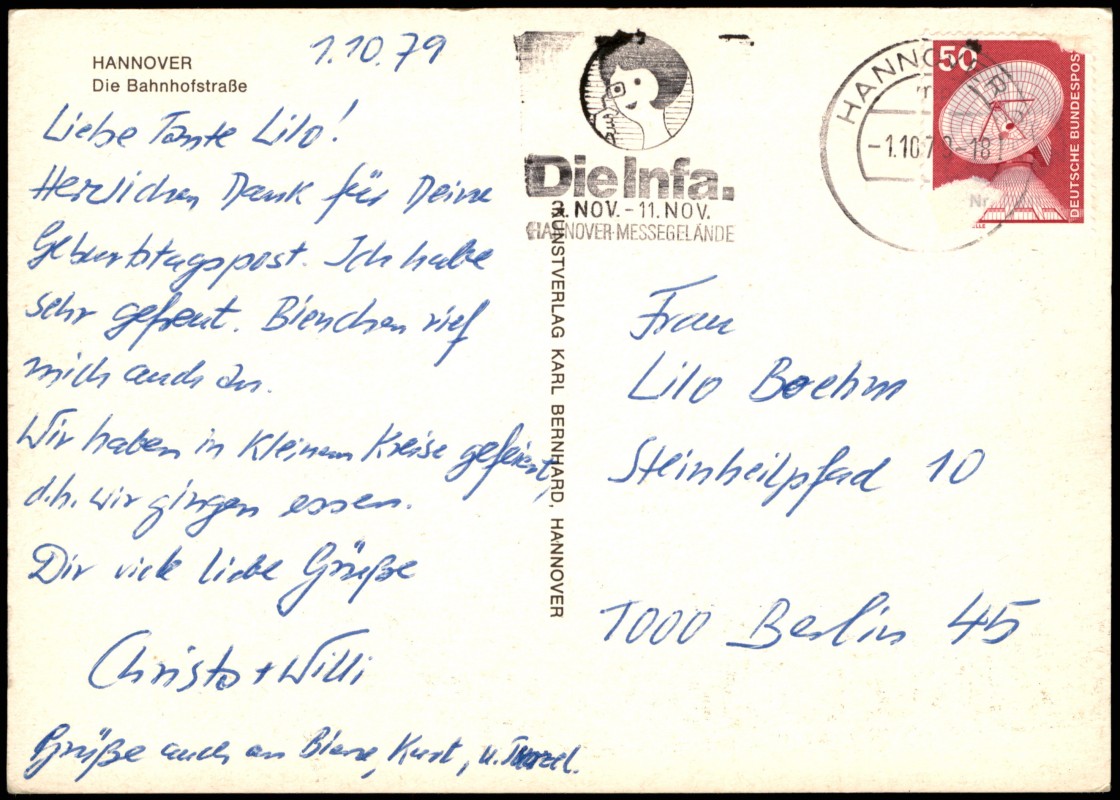 HANNOVER
Die Bahnhofstraße
1.10.79
Liebe Tante Lilo!
Herzlichen Dank für Deine
Geburtstagspost. Ich habe
sehr gefreut. Bienchen rief
mich auch an.
Wir haben in kleinem Kreise gefeiert,
d.h. wir gingen essen.
Dir viele liebe Grüße
Christo + Willi
Grüße auch an Kurt, u.
Die Infa.
NOV. - 11. NOV.
HANNOVER-MESSEGELÄNDE
KUNSTVERLAG KARL BERNHARD, HANNOVER
HANNOVER
-1.10.79-18
50
DEUTSCHE BUNDESPOST
Nr.
Frau
Lilo Boehm
Steinheilpfad 10
1000 Berlin 45